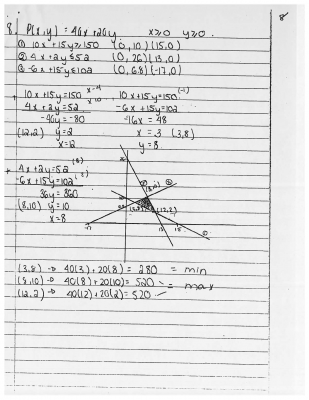 8
8. P(x,y) = 40x + 20y x≥0 y≥0
① 10x + 15y ≥ 150 (0,10) (15,0)
② 4x + 2y ≤ 52 (0,26) (13,0)
③ -6x + 15y ≤ 102 (0,6.8) (-17,0)
* 10x + 15y = 150 x-4 10x + 15y = 150 (-1)
4x + 2y = 52 x10 -6x + 15y = 102
-40y = -80 16x = 48
(12,2) y = 2 x = 3 (3,8)
x = 12 y = 8
* 4x + 2y = 52
-6x + 15y = 102
36y = 360
(8,10) y = 10
x = 8
(3,8) → 40(3) + 20(8) = 280 = min
(8,10) → 40(8) + 20(10) = 520
= max
(12,2) → 40(12) + 20(2) = 520